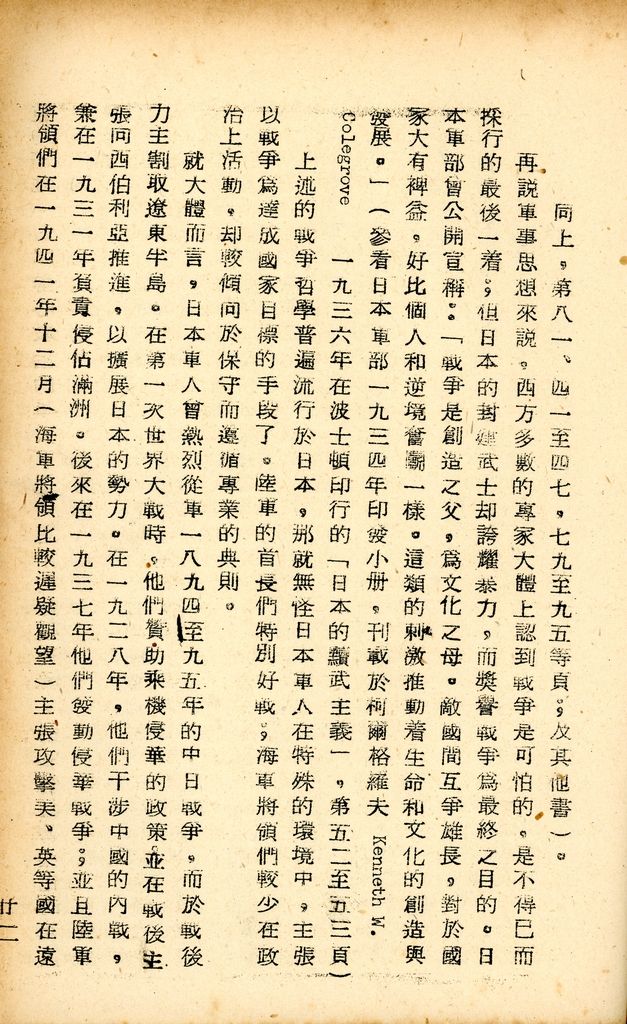 同上，第八一、四一至四七，七九至九五等頁；及其他書）。
再説軍事思想來說。西方多數的專家大體上認到戰爭是可怕的。是不得已而
採行的最後一着；但日本的封建武士却誇耀暴力，而獎譽戰爭爲最終之目的。日
本軍部曾公開宣稱：「戰爭是創造之父，爲文化之母。敵國間互爭雄長，對於國
家大有裨益。好比個人和逆境奮鬭一樣。這類的刺激推動着生命和文化的創造與
發展。」（參看日本軍部一九三四年印發小册，刊載於柯爾格羅夫 Kenneth W.
Colegrove 一九三六年在波士頓印行的「日本的黷武主義」，第五二至五三頁）
上述的戰爭哲學普遍流行於日本，那就無怪日本軍人在特殊的環境中，主張
以戰爭爲達成國家目標的手段了。陸軍的首長們特別好戰；海軍將領們較少在政
治上活動，却較傾向於保守而遵循專業的典則。
就大體而言，日本軍人曾熱烈從軍一八九四至九五年的中日戰爭，而於戰後
力主割取遼東半島。在第一次世界大戰時，他們贊助乘機侵華的政策，並在戰後主
張向西伯利亞推進，以擴展日本的勢力。在一九二八年，他們干涉中國的內戰，
兼在一九三一年負責侵佔滿洲。後來在一九三七年他們發動侵華戰爭；並且陸軍
將領們在一九四一年十二月（海軍將領比較遲疑觀望）主張攻擊美、英等國在遠
廿二